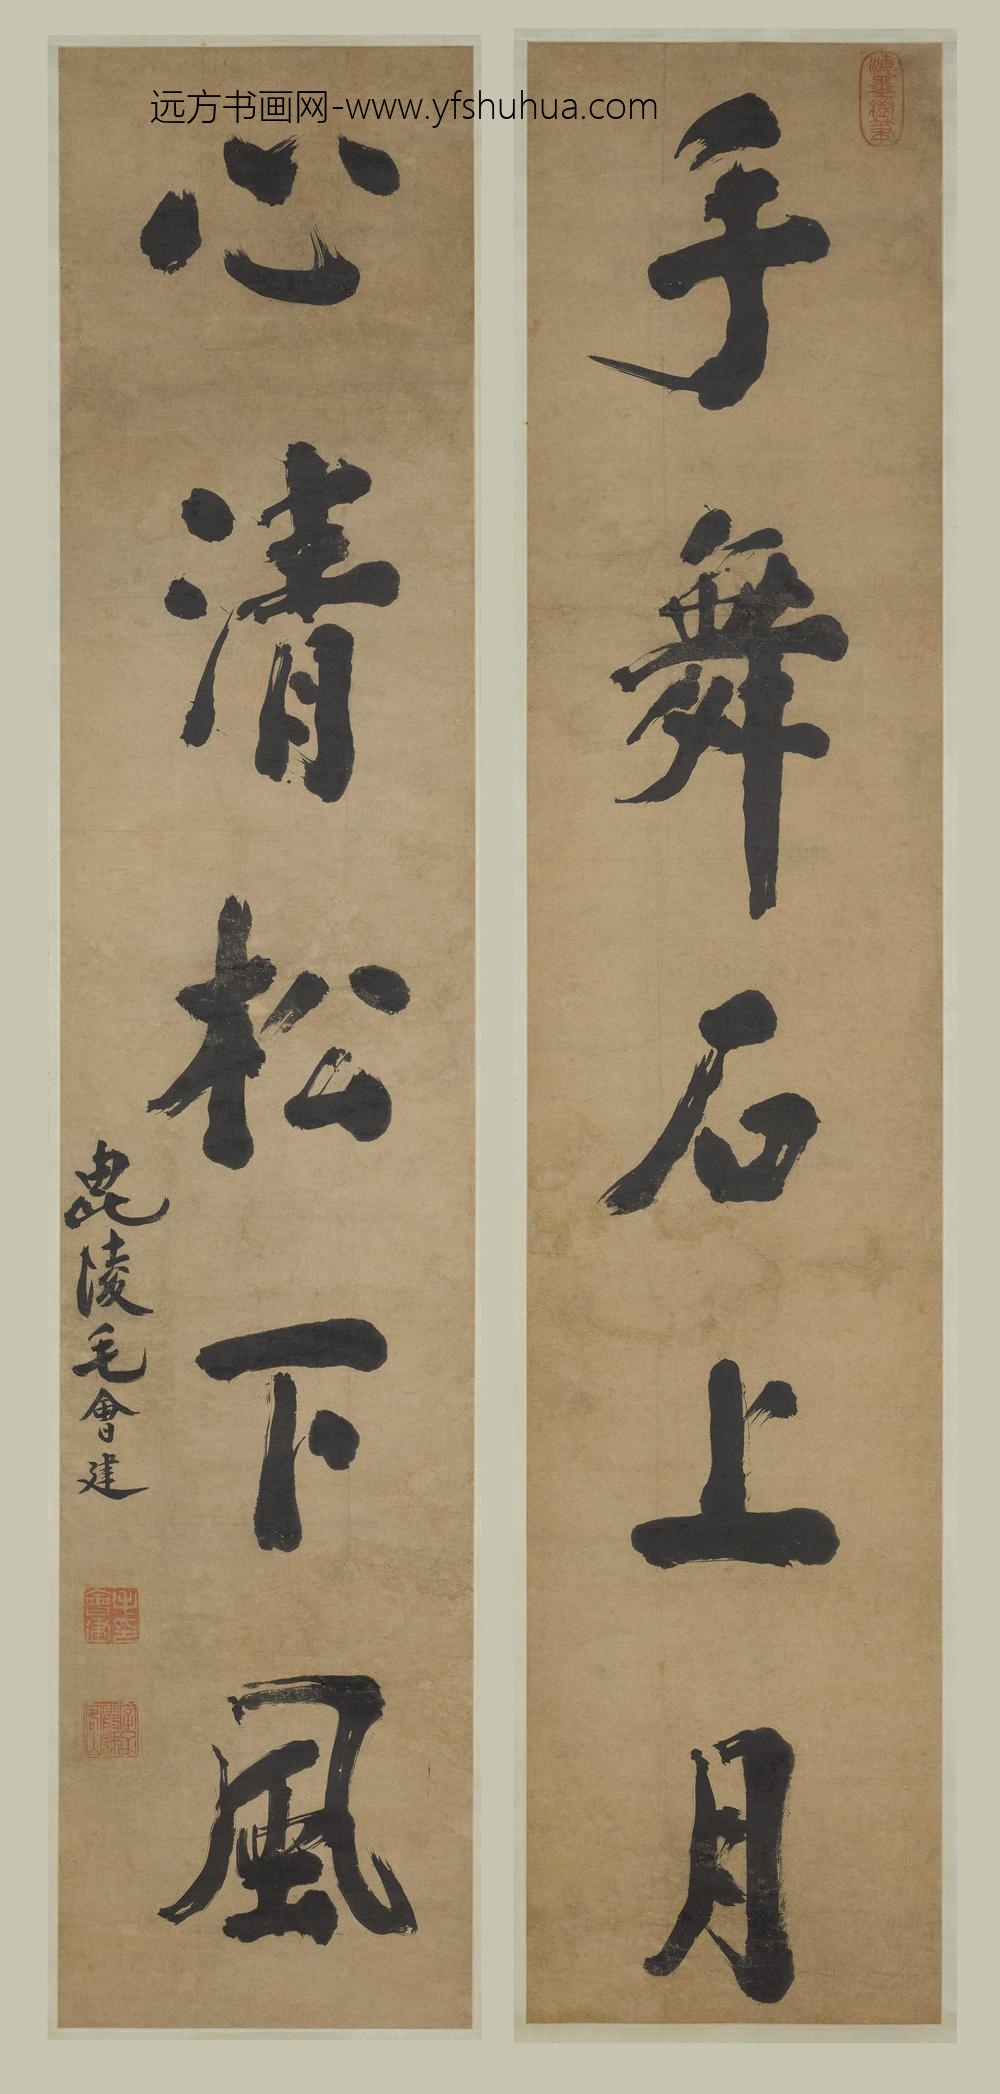 远方书画网-www.yfshuhua.com
手舞石上月
心清松下風
毘陵毛會建